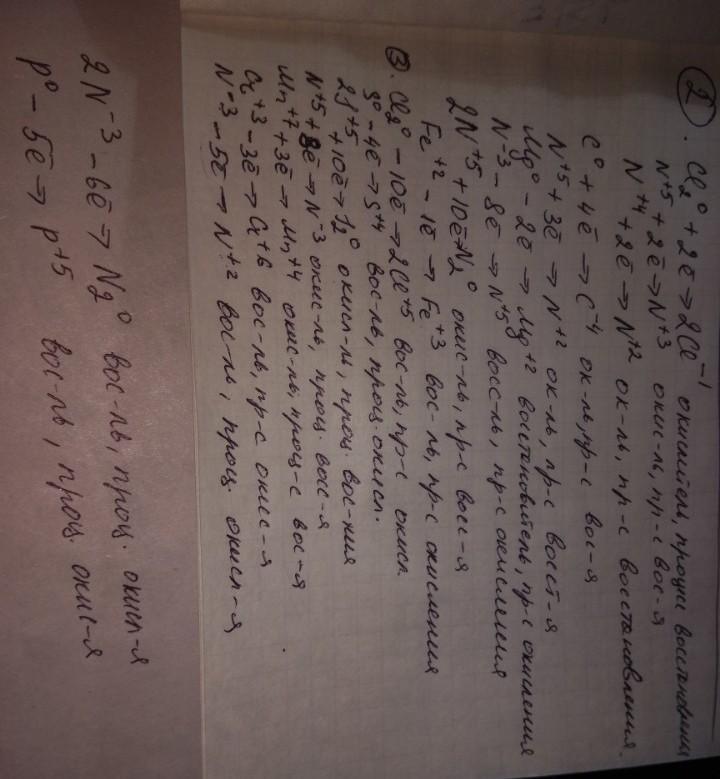 2. Cl₂⁰ + 2ē → 2Cl⁻¹ окислитель, процесс восстановления
N⁺⁵ + 2ē → N⁺³ окис-ль, пр-с вос-я
N⁺⁴ + 2ē → N⁺² ок-ль, пр-с восстановления.
C⁰ + 4ē → C⁻⁴ ок-ль, пр-с вос-я
N⁺⁵ + 3ē → N⁺² ок-ль, пр-с восст-я
Mg⁰ - 2ē → Mg⁺² восстановитель, пр-с окисления
N⁻³ - 8ē → N⁺⁵ восс-ль, пр-с окисления
2N⁺⁵ + 10ē → N₂⁰ окис-ль, пр-с восс-я
Fe⁺² - 1ē → Fe⁺³ вос-ль, пр-с окисления
3. Cl₂⁰ - 10ē → 2Cl⁺⁵ вос-ль, пр-с окисл.
S⁰ - 4ē → S⁺⁴ вос-ль, проц. окисл.
2J⁺⁵ + 10ē → J₂⁰ окисл-ль, проц. вос-ния
N⁺⁵ + 8ē → N⁻³ окис-ль, проц. восс-я
Mn⁺⁷ + 3ē → Mn⁺⁴ окис-ль, проц-с вос-я
Cr⁺³ - 3ē → Cr⁺⁶ вос-ль, пр-с окис-я
N⁻³ - 5ē → N⁺² вос-ль, проц. окисл-я
2N⁻³ - 6ē → N₂⁰ вос-ль, проц. окисл-я
P⁰ - 5ē → P⁺⁵ вос-ль, проц. окис-я